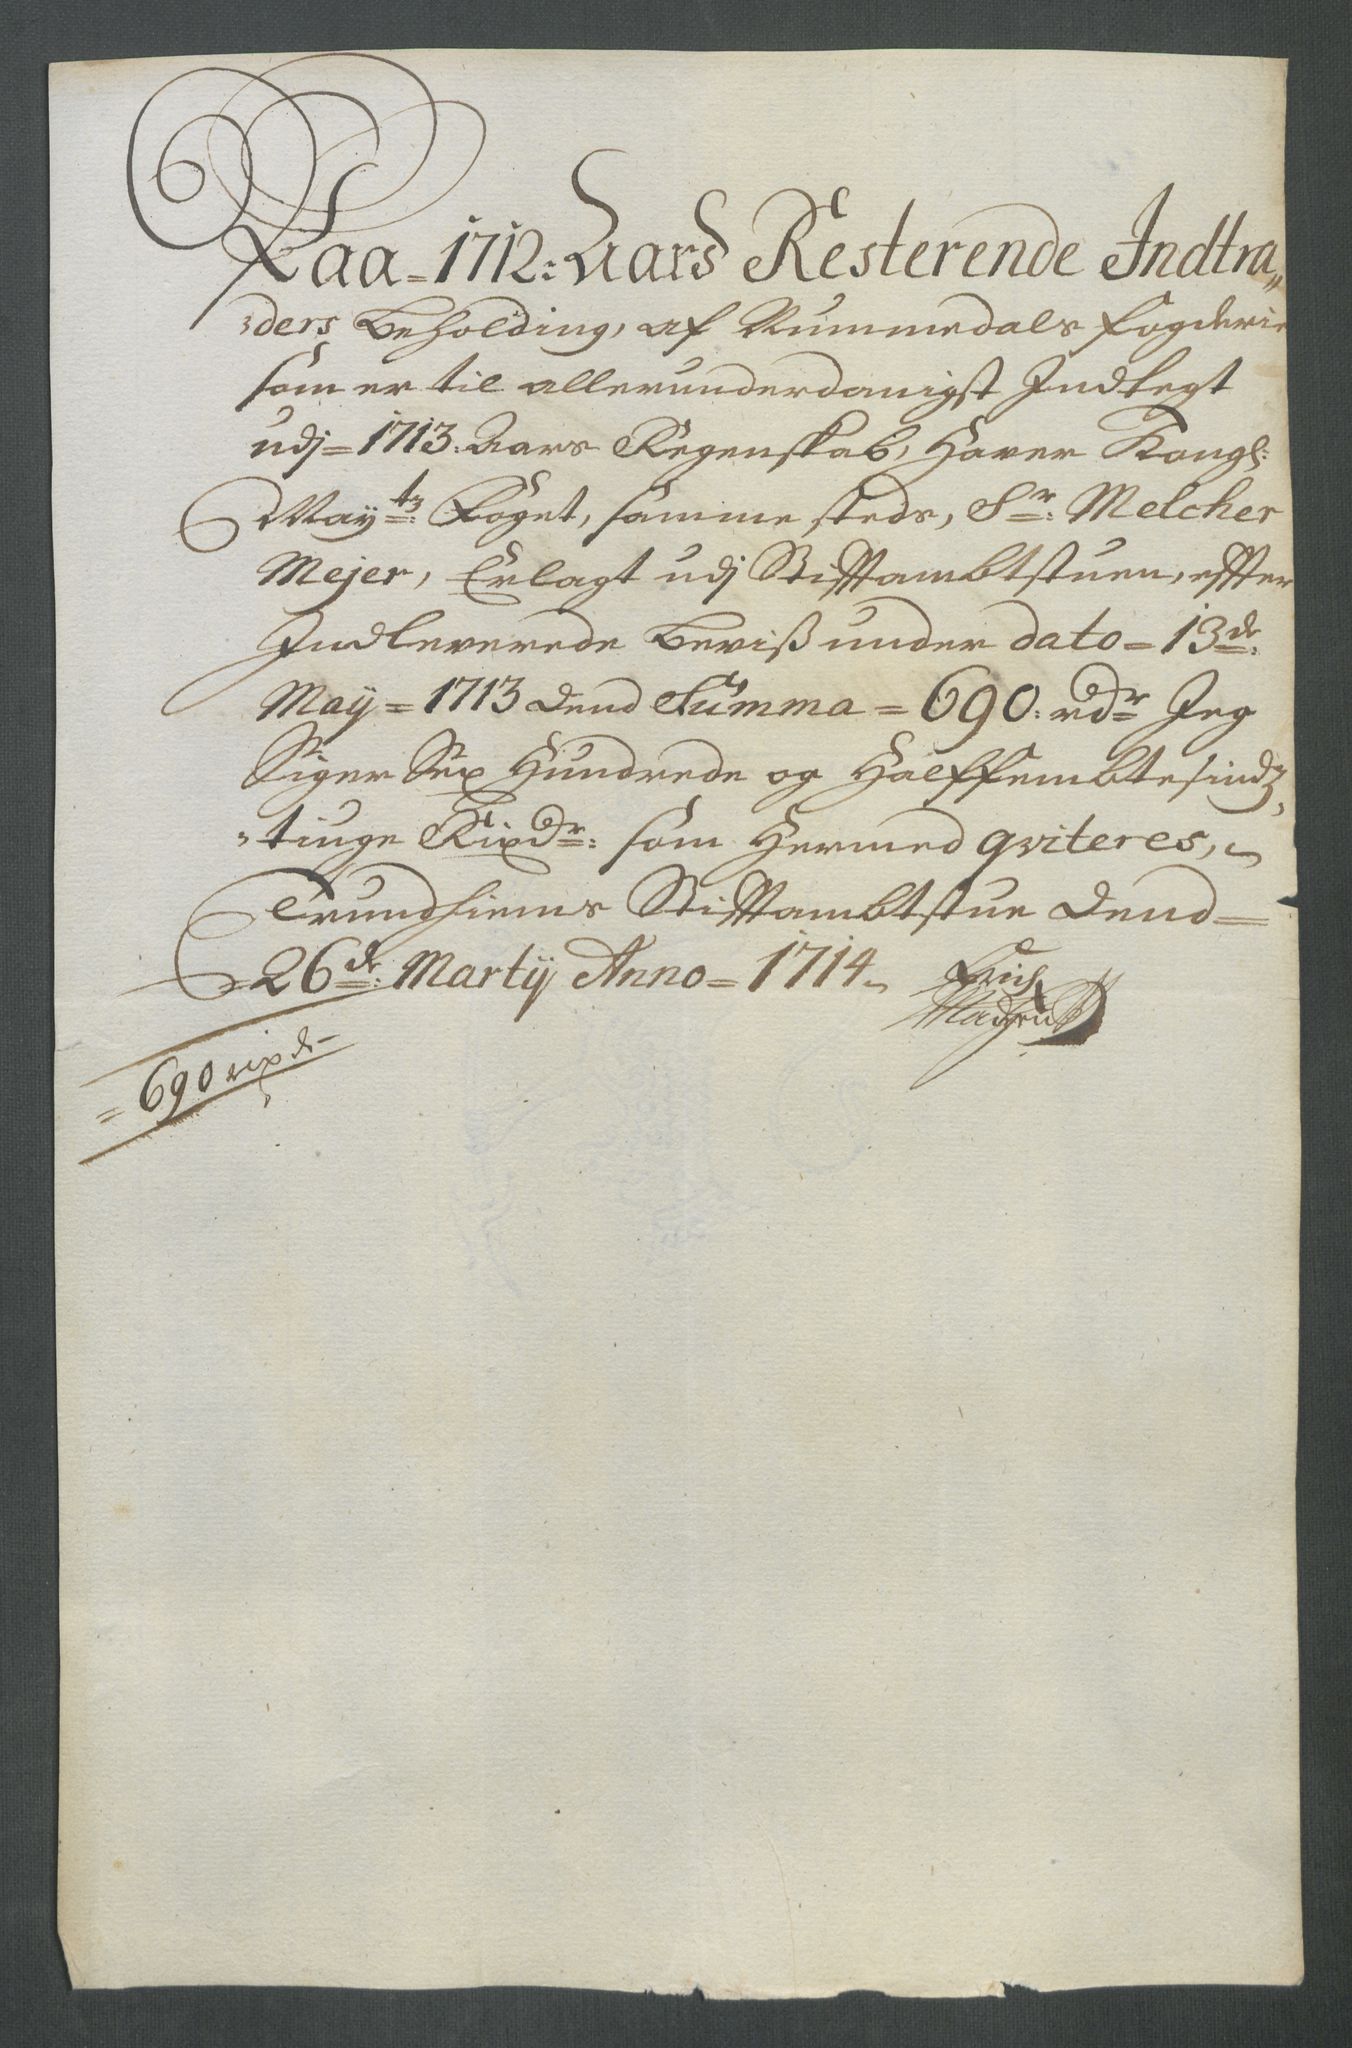 Paa = 1712: Aars Resterende Indtra„
:ders Beholding, af Nummedals fogderie
som er til allerunderdanigst Indlegt
udj = 1713: Aars Regenskab, Haver Kongl:
May:tz Foget, samme steds, Sr: Melcher
Mejer, Erlagt udj Stifftambtstuen, effter
Indleverede Beviß under dato = 13de:
Maÿ = 1713 dend Summa = 690: rdr Jeg
Siger Sex Hundrede og Halffembtesindz,
„tiuge Rixdr: som Hermed qviteres,
Trundhiems Stifftambtstue dend =
26de: Martij Anno = 1714
Erich
= 690 rixdr